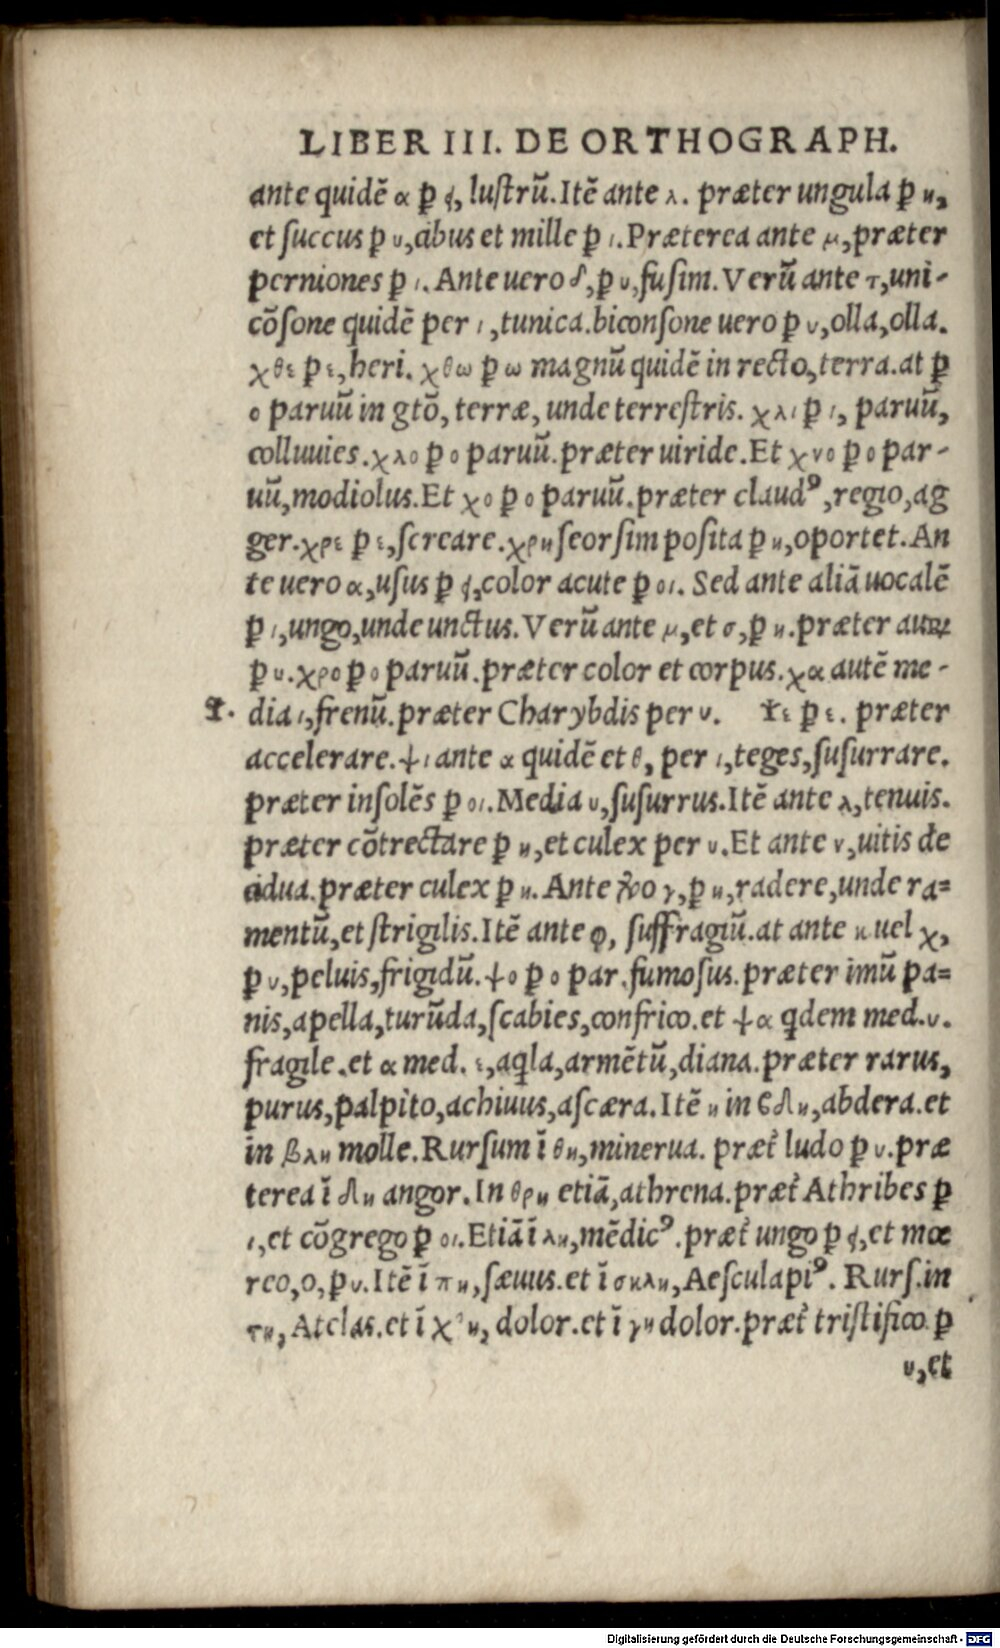 LIBER III. DE ORTHOGRAPH.
ante quidē α ꝑ ει, luſtrū. Itē ante λ. præter ungula ꝑ η,
et ſuccus ꝑ υ, cibus et mille ꝑ ι. Præterea ante μ, præter
perniones ꝑ ι. Ante uero δ, ꝑ υ, fuſim. Verū ante τ, uni-
cōſone quidē per ι, tunica. biconſone uero ꝑ υ, olla, olla.
χθε ꝑ ε, heri. χθω ꝑ ω magnū quidē in recto, terra. at ꝑ
ο paruū in gtō, terræ, unde terreſtris. χλι ꝑ ι, paruū,
colluuies. χλο ꝑ ο paruū. præter uiride. Et χνο ꝑ ο par-
uū, modiolus. Et χο ꝑ ο paruū. præter claudꝰ, regio, ag
ger. χρε ꝑ ε, ſcreare. χρη ſeorſim poſita ꝑ η, oportet. An
te uero α, uſus ꝑ ει, color acute ꝑ οι. Sed ante aliā uocalē
ꝑ ι, ungo, unde unctus. Verū ante μ, et σ, ꝑ η. præter auꝝ
ꝑ υ. χρο ꝑ ο paruū. præter color et corpus. χα autē me-
Ψ. dia ι, frenū. præter Charybdis per υ. Ψε ꝑ ε. præter
accelerare. ψι ante α quidē et θ, per ι, teges, ſuſurrare.
præter inſolēs ꝑ οι. Media υ, ſuſurrus. Itē ante λ, tenuis.
præter cōtrectare ꝑ η, et culex per υ. Et ante ν, uitis de
cidua. præter culex ꝑ η. Ante γ, ꝑ η, radere, unde ra=
mentū, et ſtrigilis. Itē ante φ, ſuffragiū. at ante κ uel χ,
ꝑ υ, peluis, frigidū. ψο ꝑ ο par. fumoſus. præter imū pa=
nis, apella, turūda, ſcabies, confrico. et ψα qdem med. υ.
fragile. et α med. ε, aqla, armētū, diana. præter rarus,
purus, palpito, achiuus, aſcæra. Itē η in βδη, abdera. et
in βλη molle. Rurſum ī θη, minerua. præt̉ ludo ꝑ υ. præ
terea ī δη angor. In θρη etiā, athrena. præt̉ Athribes ꝑ
ι, et cōgrego ꝑ οι. Etiā ī λη, mēdicꝰ. præt̉ ungo ꝑ ει, et mœ
reo, o, ꝑ υ. Itē ī πη, ſæuus. et ī σκλη, Aeſculapiꝰ. Rurſ. in
τη, Atelas. et ī χη, dolor. et ī γη dolor. præt̉ triſtifico. ꝑ
υ, et
Digitalisierung gefördert durch die Deutsche Forschungsgemeinschaft - DFG